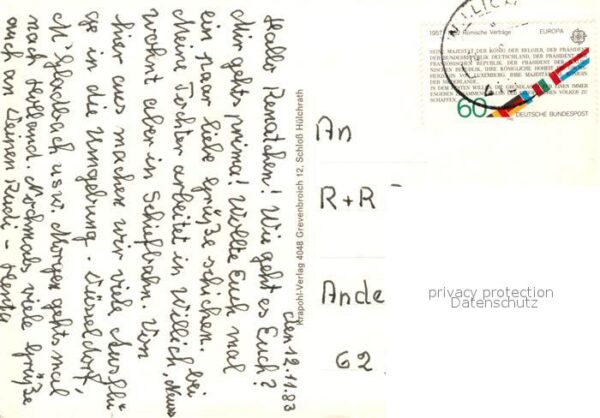 den 12.11.83
Hallo Renatchen! Wie geht es Euch?
Mir geht's prima! Wollte Euch mal
ein paar liebe Grüße schicken.
Meine Tochter arbeitet in Willich, bei Neuss
wohnt aber in Schiefbahn. Von
hier aus machen wir viele Ausflü-
ge in die Umgebung. Düsseldorf,
M'gladbach usw. Morgen gehts mal
nach Holland. Nochmals viele Grüße
auch an Deinen Rudi -
Krapohl-Verlag 4048 Grevenbroich 12, Schloß Hülchrath
An
R+R
Ande
62
WILLICH
1957 Römische Verträge EUROPA
SEINE MAJESTÄT DER KÖNIG DER BELGIER, DER PRÄSIDENT
DER BUNDESREPUBLIK DEUTSCHLAND, DER PRÄSIDENT DER
FRANZÖSISCHEN REPUBLIK, DER PRÄSIDENT DER
NISCHEN REPUBLIK, IHRE KÖNIGLICHE HOHEIT
VON LUXEMBURG, IHRE MAJESTÄT
IN DEM FESTEN WILLEN, DIE GRUNDLAGEN EINEN IMMER
ENGEREN VÖLKER ZU
SCHAFFEN
60
DEUTSCHE BUNDESPOST
privacy protection
Datenschutz